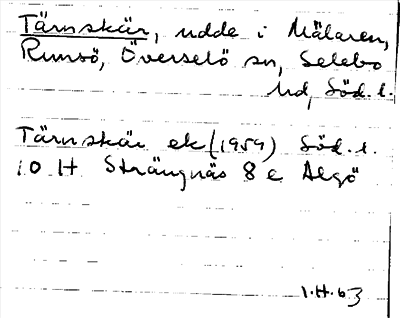 Tärnskär, udde i Mälaren,
Runsö, Överselö sn, Selebo
hd, Söd. l.
Tärnskär ek (1959) Söd. l.
10 H Strängnäs 8 e Algö
1.H.63